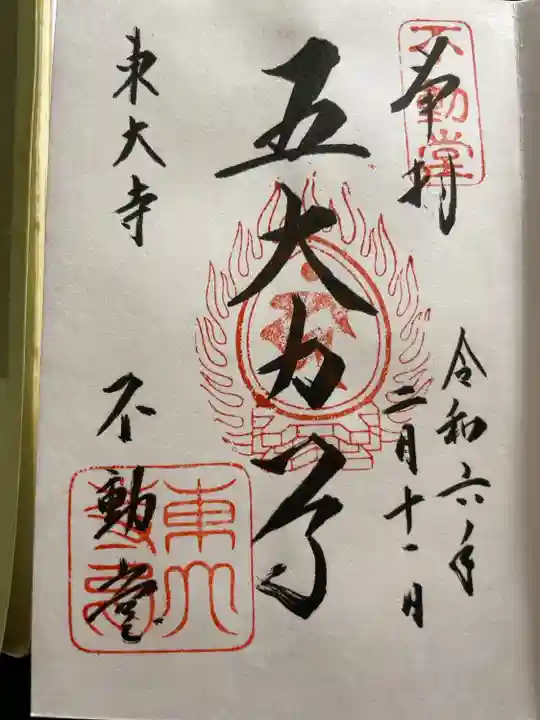 奉拝
不動堂
令和六年
二月十一日
五大力尊
東大寺
不動堂
東大